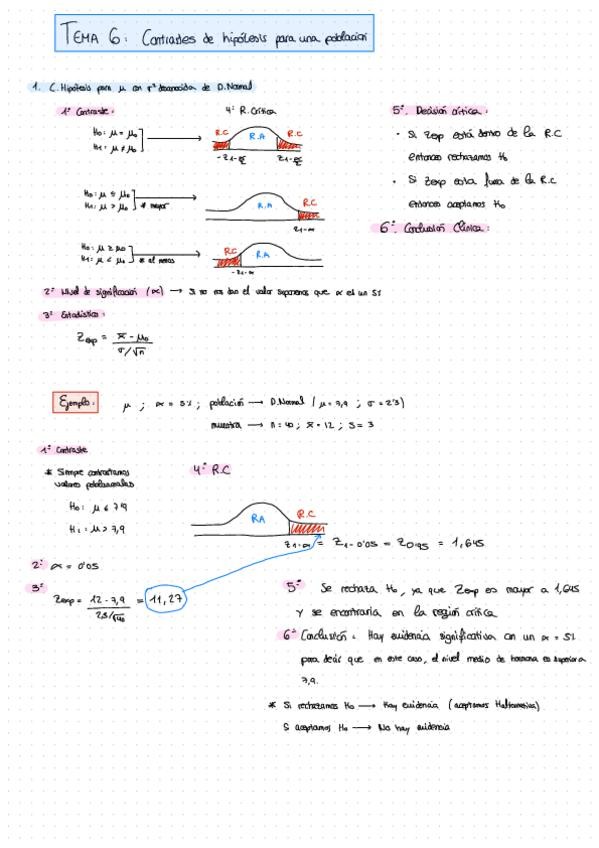 TEMA 6: Contrastes de hipótesis para una población
1. C. Hipótesis para μ con σ² desconocida de D. Normal
1º Contraste:
H₀: μ = μ₀
H₁: μ ≠ μ₀
4º R. Crítica
R.C R.A R.C
-z1-α/2 z1-α/2
H₀: μ ≤ μ₀
H₁: μ > μ₀ * mayor
R.A R.C
z1-α
H₀: μ ≥ μ₀
H₁: μ < μ₀ * al menos
R.C R.A
-z1-α
5º. Decisión crítica:
· Si Zexp está dentro de la R.C
entonces rechazamos H₀
· Si Zexp esta fuera de la R.C
entonces aceptamos H₀
6º. Conclusión Clínica:
2º Nivel de significación (α) → Si no nos dan el valor suponemos que α es un 5%
3º Estadístico:
Zexp = x̄ - μ₀ / σ/√n
Ejemplo:
μ ; α = 5% ; población → D.Normal (μ = 7,9 ; σ = 2'3)
muestra → n = 40 ; x̄ = 12 ; S = 3
1º Contraste
* Siempre contrastamos
valores poblacionales
H₀: μ ≤ 7'9
H₁: μ > 7,9
4º R.C
RA R.C
z1-α = Z1-0'05 = Z0'95 = 1,645
2º α = 0'05
3º
Zexp = 12 - 7,9 / 2'3/√40 = 11,27
5º Se rechaza H₀, ya que Zexp es mayor a 1,645
y se encontraría en la región crítica
6º Conclusión: Hay evidencia significativa con un α = 5%
para decir que en este caso, el nivel medio de hormona es superior a
7,9.
* Si rechazamos H₀ → Hay evidencia (aceptamos Halternativa)
Si aceptamos H₀ → No hay evidencia